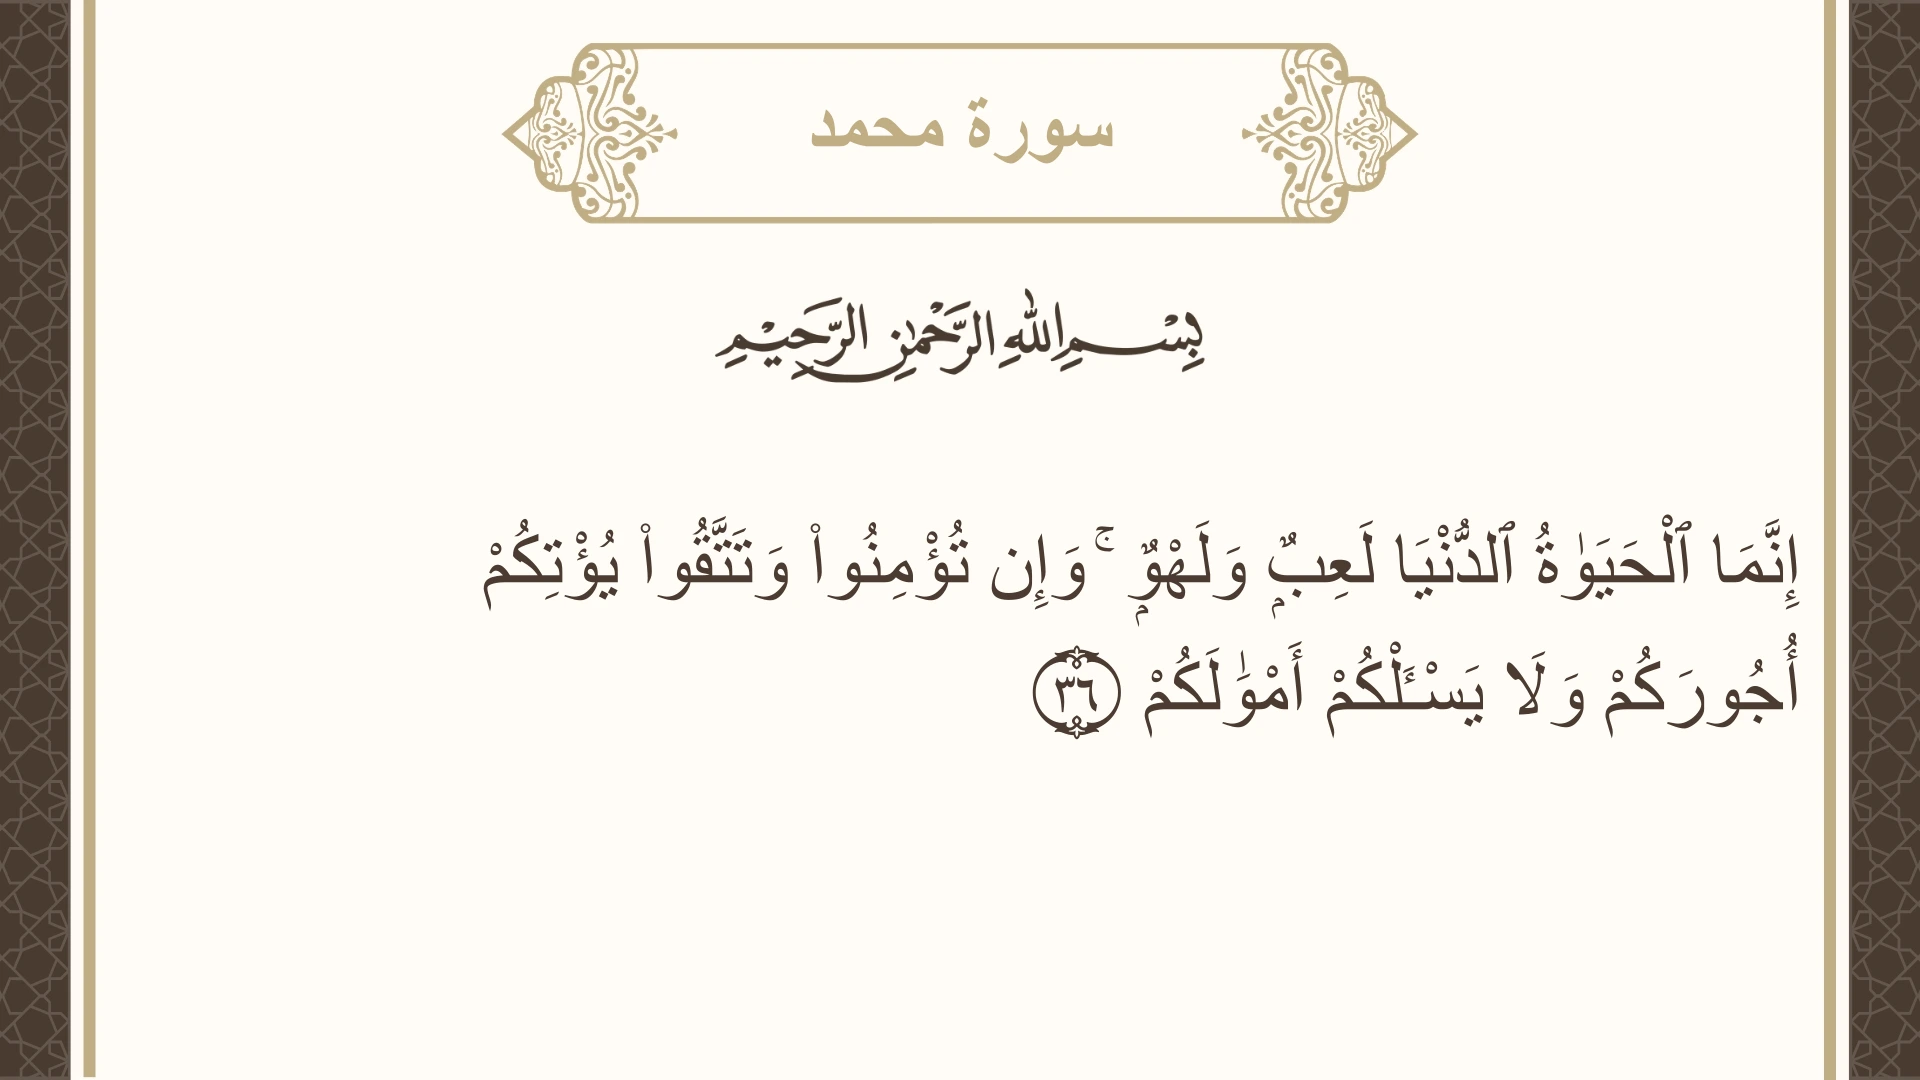 سورة محمد
بِسْمِ اللهِ الرَّحْمٰنِ الرَّحِيْمِ
إِنَّمَا ٱلْحَيَوٰةُ ٱلدُّنْيَا لَعِبٌۭ وَلَهْوٌۭ ۚ وَإِن تُؤْمِنُوا۟ وَتَتَّقُوا۟ يُؤْتِكُمْ
أُجُورَكُمْ وَلَا يَسْـَٔلْكُمْ أَمْوَٰلَكُمْ ٣٦